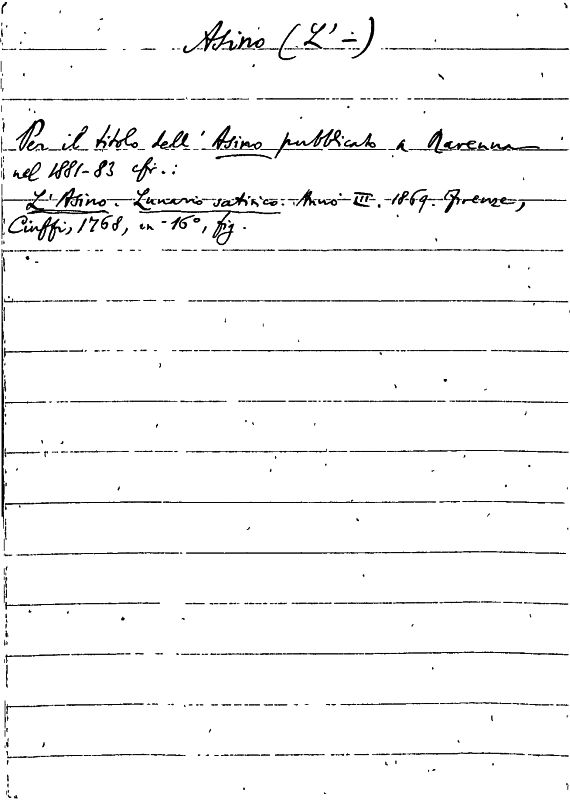 Asino (L'-)
Per il titolo dell'Asino pubblicato a Ravenna
nel 1881-83 cfr.:
L'Asino. Lunario satirico. Anno III. 1869. Firenze,
Ciuffi, 1768, in-16°, fig.